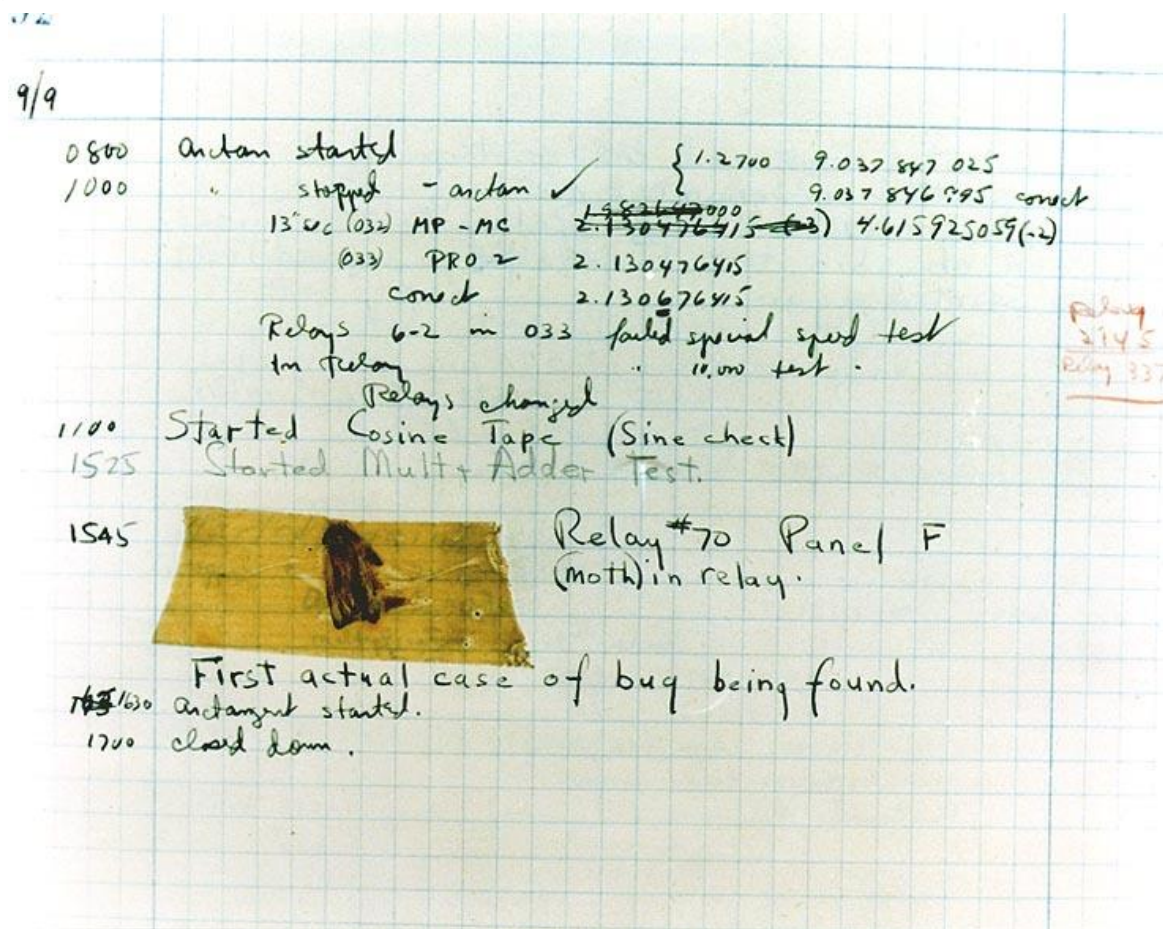 92
9/9
0800 Antan started { 1.2700 9.037 847 025
1000 " stopped - antan ✓ 9.037 846 995 conect
13"uc (032) MP - MC 2.130476415 (-3) 4.615925059(-2)
(033) PRO 2 2.130476415
conect 2.130676415
Relays 6-2 in 033 failed special speed test
In Relay " 10,000 test .
Relays changed
Relay
2145
Relay 337
1100 Started Cosine Tape (Sine check)
1525 Started Mult + Adder Test.
1545 Relay #70 Panel F
(moth) in relay.
First actual case of bug being found.
1630 Antangent started.
1700 closed down .